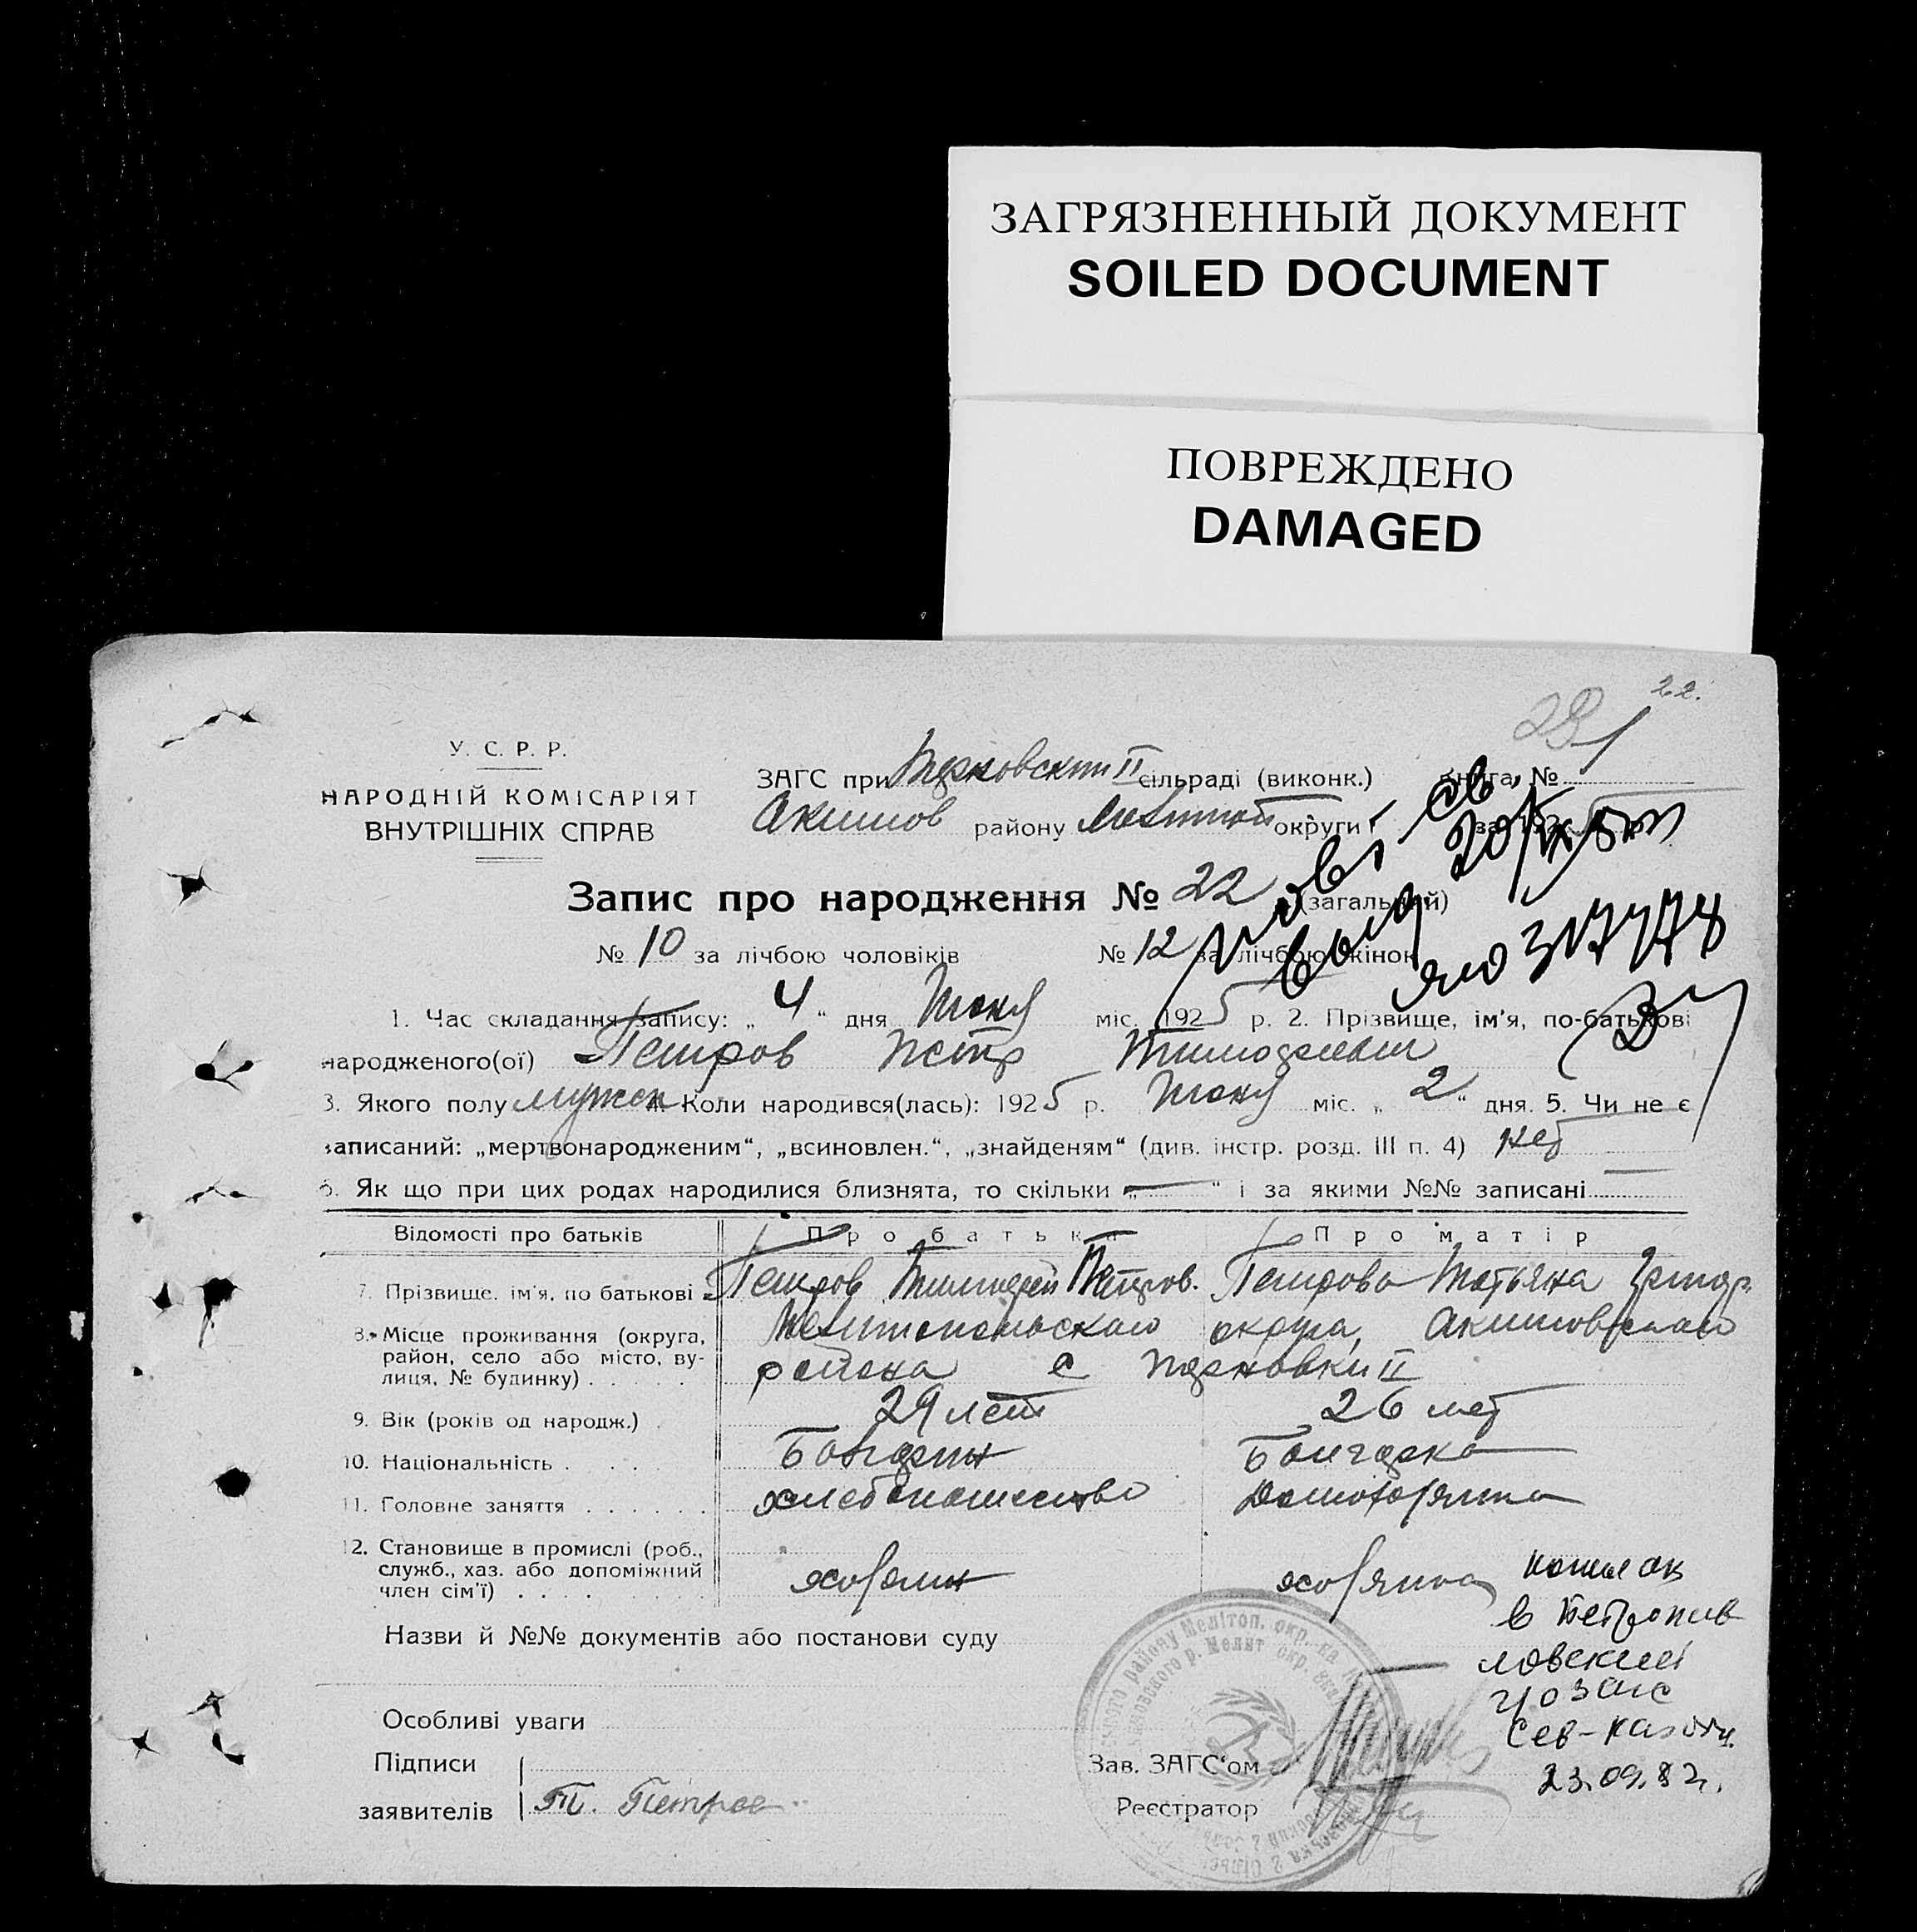 ЗАГРЯЗНЕННЫЙ ДОКУМЕНТ
SOILED DOCUMENT
ПОВРЕЖДЕНО
DAMAGED
22.
У. С. Р. Р.
НАРОДНІЙ КОМІСАРІЯТ
ВНУТРІШНІХ СПРАВ
ЗАГС при II сільраді (виконк.) книга, № 1
Акимов району округи за 192
Запис про народження № 22 (загальний)
№ 10 за лічбою чоловіків № 12 за лічбою жінок
20/IX
317778
1. Час складання запису: „ 4 “ дня Июня міс. 1925 р. 2. Прізвище, ім'я, по-батькові
народженого(ої) Петров Петр
3. Якого полу мужск 4. Коли народився(лась): 1925 р. Июня міс. „ 2 “ дня. 5. Чи не є
записаний: „мертвонародженим“, „всиновлен.“, „знайденям“ (див. інстр. розд. III п. 4) нет
6. Як що при цих родах народилися близнята, то скільки „ — “ і за якими №№ записані —
Відомості про батьків Про батька Про матір
7. Прізвище, ім'я, по батькові Петров Тимофей Петров. Петрова Татьяна
8. Місце проживання (округа, район, село або місто, вулиця, № будинку) Мелитопольского округа, Акимовского
района с II
9. Вік (років од народж.) 29 лет 26 лет
10. Національність Болгарин Болгарка
11. Головне заняття хлебопашество Домохозяйка
12. Становище в промислі (роб., служб., хаз. або допоміжний член сім'ї) хозяин хозяйка
Назви й №№ документів або постанови суду
Особливі уваги
Підписи
заявителів Т. Петров
Зав. ЗАГС'ом
Реєстратор
в Петропав
ловский
загс
Сев-каз
23.09.82г.